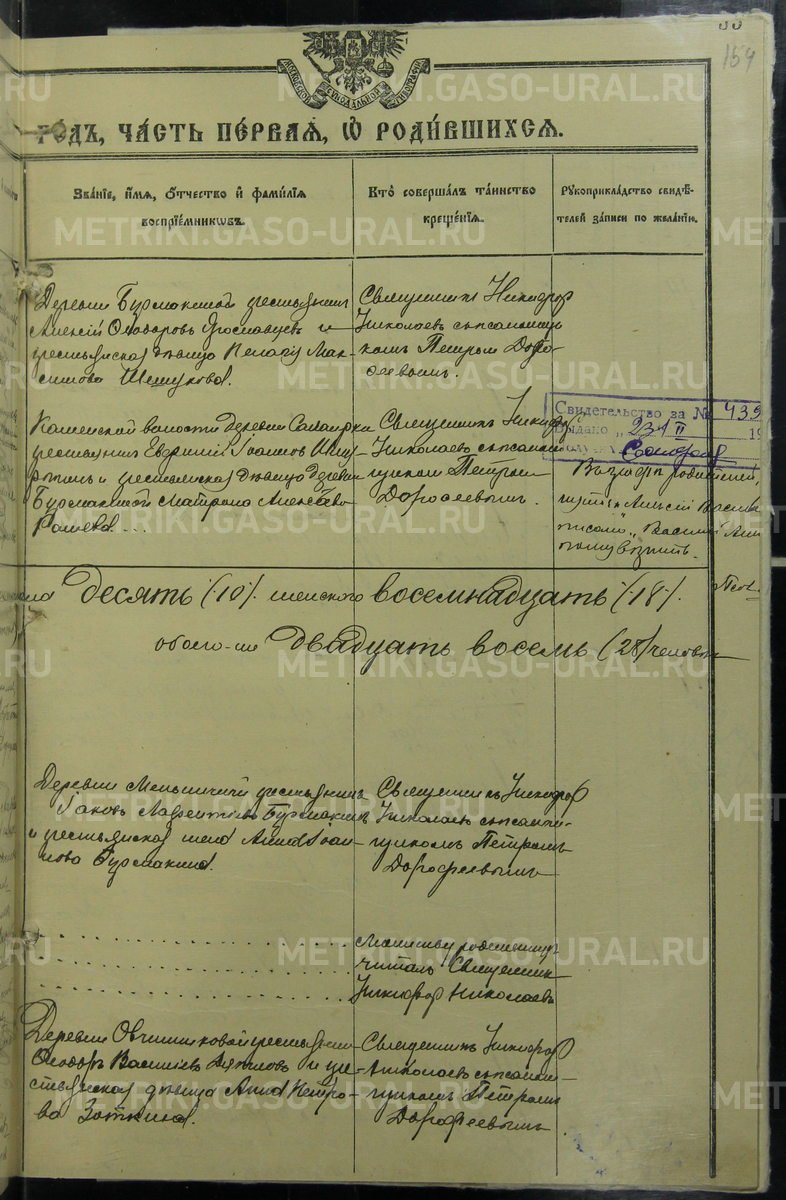 159
МОСКОВСКОЙ СѴНОДАЛЬНОЙ ТИПОГРАФІИ
ГОДЪ, ЧАСТЬ ПЕРВАЯ, Ѡ РОДИВШИХСЯ.
Званіе, имя, отчество и фамилія
воспріемниковъ.
Кто совершалъ таинство
крещенія.
Рукоприкладство свидѣ-
телей записи по желанію.
Деревни Бурмакиной крестьянинъ
Алексій Ѳеодоровъ Ярославцевъ и
крестьянская дѣвица Пелагія Мак-
симова Шешукова.
Священникъ Никифоръ
Николаевъ съ псаломщи-
комъ Петромъ Доро-
феевымъ.
Каменской волости деревни
крестьянинъ Евгеній Іоанновъ
и крестьянская дѣвица деревни
Бурмакиной Матрона Алексѣева
Священникъ Никифоръ
Николаевъ съ псалом-
щикомъ Петромъ
Дорофеевымъ.
Свидѣтельство за № 439
Выдано 23 II 19
родителей,
Алексій
Василій
десять (10). женского восемнадцать (18).
обоего-же двадцать восемь (28) человекъ
Деревни крестьянинъ
Іаковъ Лаврентіевъ Бурмакинъ
и крестьянская жена Анна Іоан-
нова Бурмакина.
Священникъ Никифоръ
Николаевъ съ псалом-
щикомъ Петромъ
Дорофеевымъ
Молитву родильницѣ
читалъ Священникъ
Никифоръ Николаевъ
Деревни Овчинниковой крестьянинъ
Ѳеодоръ Василіевъ и кре-
стьянская дѣвица Анна Петро-
ва Зоткина.
Священникъ Никифоръ
Николаевъ съ псалом-
щикомъ Петромъ
Дорофеевымъ
METRIKI.GASO-URAL.RU